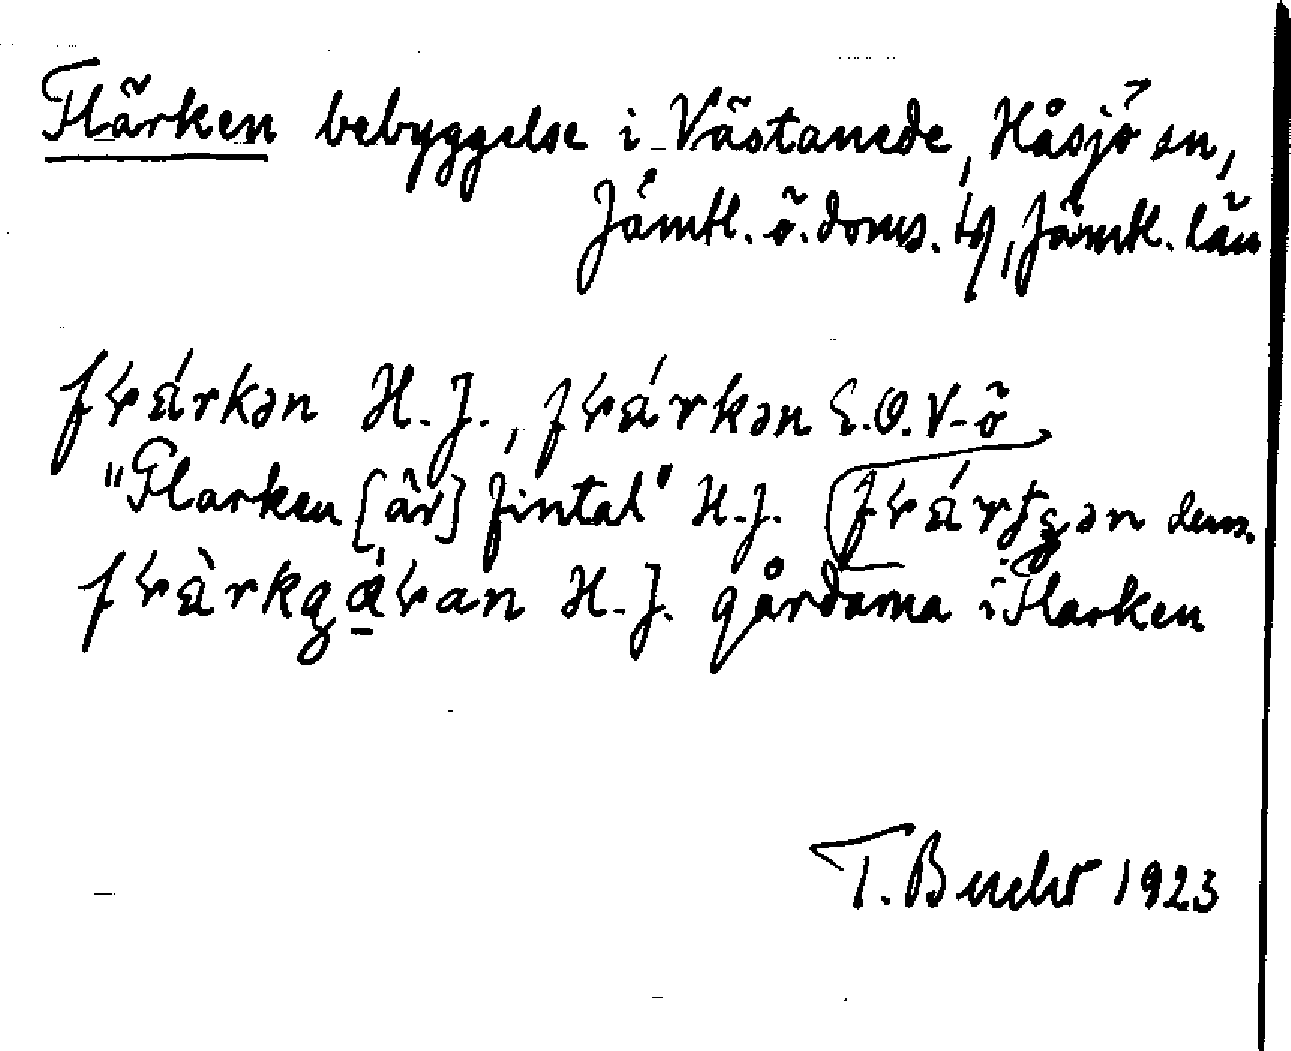 Flärken bebyggelse i Västanede, Håsjö sn,
Jämtl. ö. doms. hd, Jämtl. län
fɽárkən H.J., fɽárkən E.O. V-ö
"Flarken [är] fintal" H.J. fɽártɕən dens.
fɽàrkgáɽan H.J. gårdarna i Flarken
T. Bucht 1923